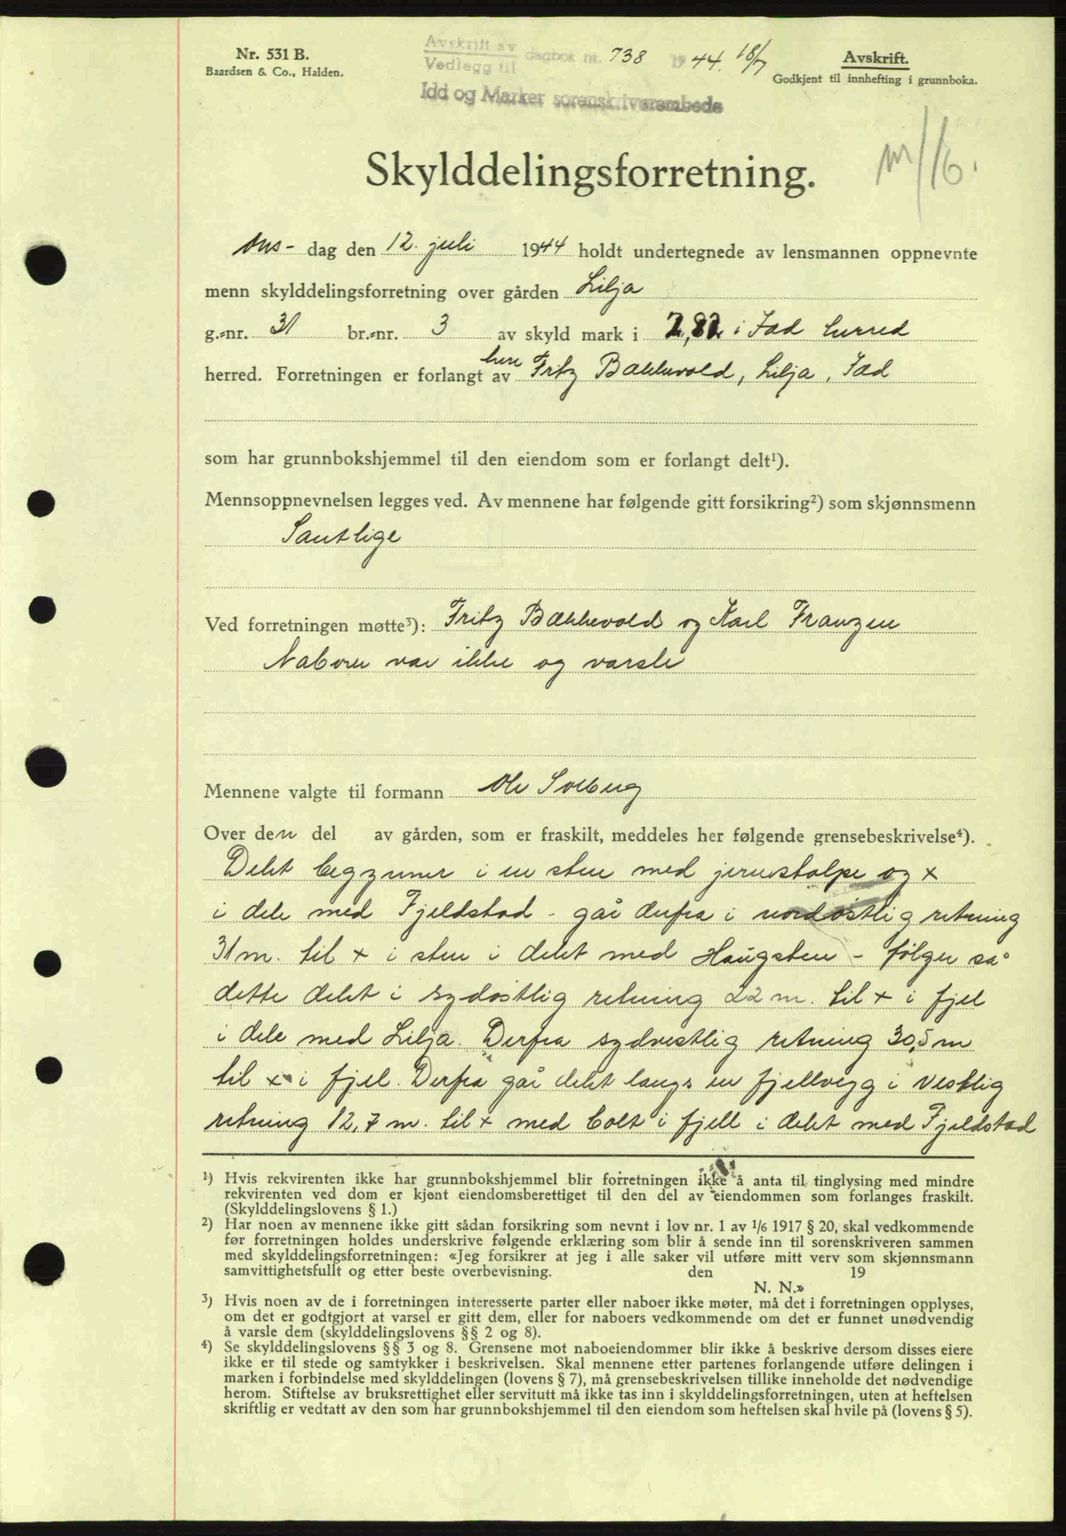 Nr. 531 B.
Baardsen & Co., Halden.
Avskrift av
Vedlegg til dagbok nr. 738 1944. 18/7
Idd og Marker sorenskriverembede
Avskrift.
Godkjent til innhefting i grunnboka.
Skylddelingsforretning.
Ons- dag den 12. juli 1944 holdt undertegnede av lensmannen oppnevnte
menn skylddelingsforretning over gården Lilja
g.-nr. 31 br.-nr. 3 av skyld mark i 2,82 i Idd herred
herred. Forretningen er forlangt av herr Fritz Bækkevold, Lilja, Idd
som har grunnbokshjemmel til den eiendom som er forlangt delt¹).
Mennsoppnevnelsen legges ved. Av mennene har følgende gitt forsikring²) som skjønnsmenn
Samtlige
Ved forretningen møtte³): Fritz Bækkevold og Karl Franzen
Naboer var ikke og varsle
Mennene valgte til formann Ole Solberg
Over den del av gården, som er fraskilt, meddeles her følgende grensebeskrivelse⁴).
Delet begynner i en sten med jernstolpe og x
i dele med Fjeldstad - går derfra i nordøstlig retning
31 m. til x i sten i delet med Haugsten - følger så
dette delet i sydøstlig retning 22 m. til x i fjel
i dele med Lilja. Derfra sydvestlig retning 30,5 m
til x i fjel. Derfra går delet langs en fjellvegg i vestlig
retning 12,7 m. til x med bolt i fjell i delet med Fjeldstad
¹) Hvis rekvirenten ikke har grunnbokshjemmel blir forretningen ikke å anta til tinglysing med mindre
rekvirenten ved dom er kjent eiendomsberettiget til den del av eiendommen som forlanges fraskilt.
(Skylddelingslovens § 1.)
²) Har noen av mennene ikke gitt sådan forsikring som nevnt i lov nr. 1 av 1/6 1917 § 20, skal vedkommende
før forretningen holdes underskrive følgende erklæring som blir å sende inn til sorenskriveren sammen
med skylddelingsforretningen: «Jeg forsikrer at jeg i alle saker vil utføre mitt verv som skjønnsmann
samvittighetsfullt og etter beste overbevisning. den 19
N. N.»
³) Hvis noen av de i forretningen interesserte parter eller naboer ikke møter, må det i forretningen opplyses,
om det er godtgjort at varsel er gitt dem, eller for naboers vedkommende om det er funnet unødvendig
å varsle dem (skylddelingslovens §§ 2 og 8).
⁴) Se skylddelingslovens §§ 3 og 8. Grensene mot naboeiendommer blir ikke å beskrive dersom disses eiere
ikke er til stede og samtykker i beskrivelsen. Skal mennene etter partenes forlangende utføre delingen i
marken i forbindelse med skylddelingen (lovens § 7), må grensebeskrivelsen tillike inneholde det nødvendige
herom. Stiftelse av bruksrettighet eller servitutt må ikke tas inn i skylddelingsforretningen, uten at heftelsen
skriftlig er vedtatt av den som har grunnbokshjemmel til den eiendom som heftelsen skal hvile på (lovens § 5).